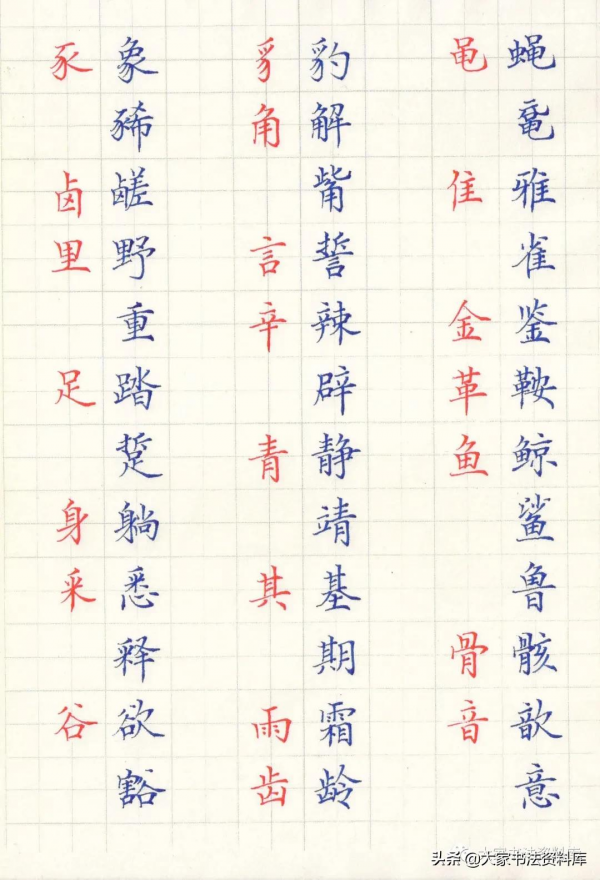 豕 象
豨
卤 鹾
里 野
重
足 踏
踅
身 躺
釆 悉
释
谷 欲
豁
豸 豹
角 解
觜
言 誓
辛 辣
辟
青 静
靖
其 基
期
雨 霜
齿 龄
黾 蝇
鼋
隹 雅
雀
金 鉴
革 鞍
鱼 鲸
鲨
鲁
骨 骸
音 歆
意
头条 @大家书法资料库